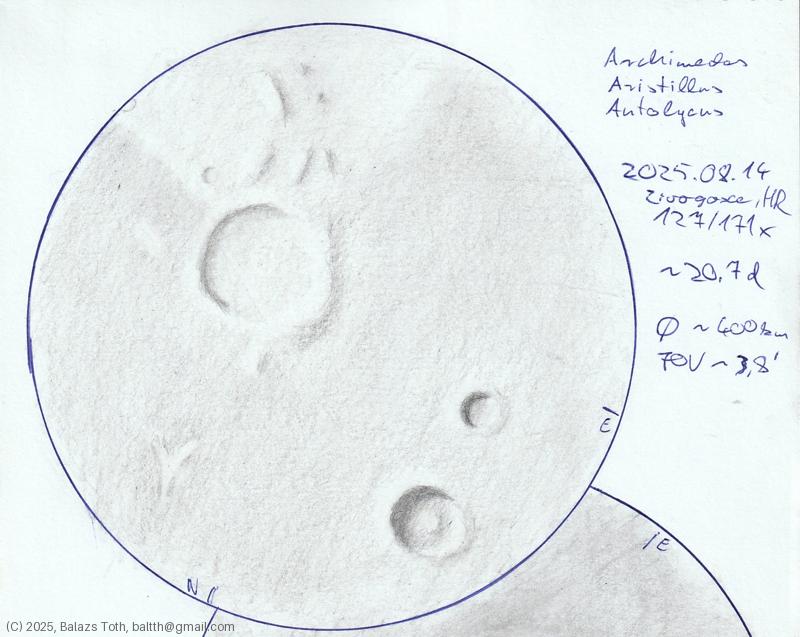 Archimedes
Aristillus
Autolycus
2025.08.14
Zivogosce, HR
127/171x
~20,7d
Ø ~400km
FOV ~3,8'
E
E
N
(C) 2025, Balazs Toth, baltth@gmail.com